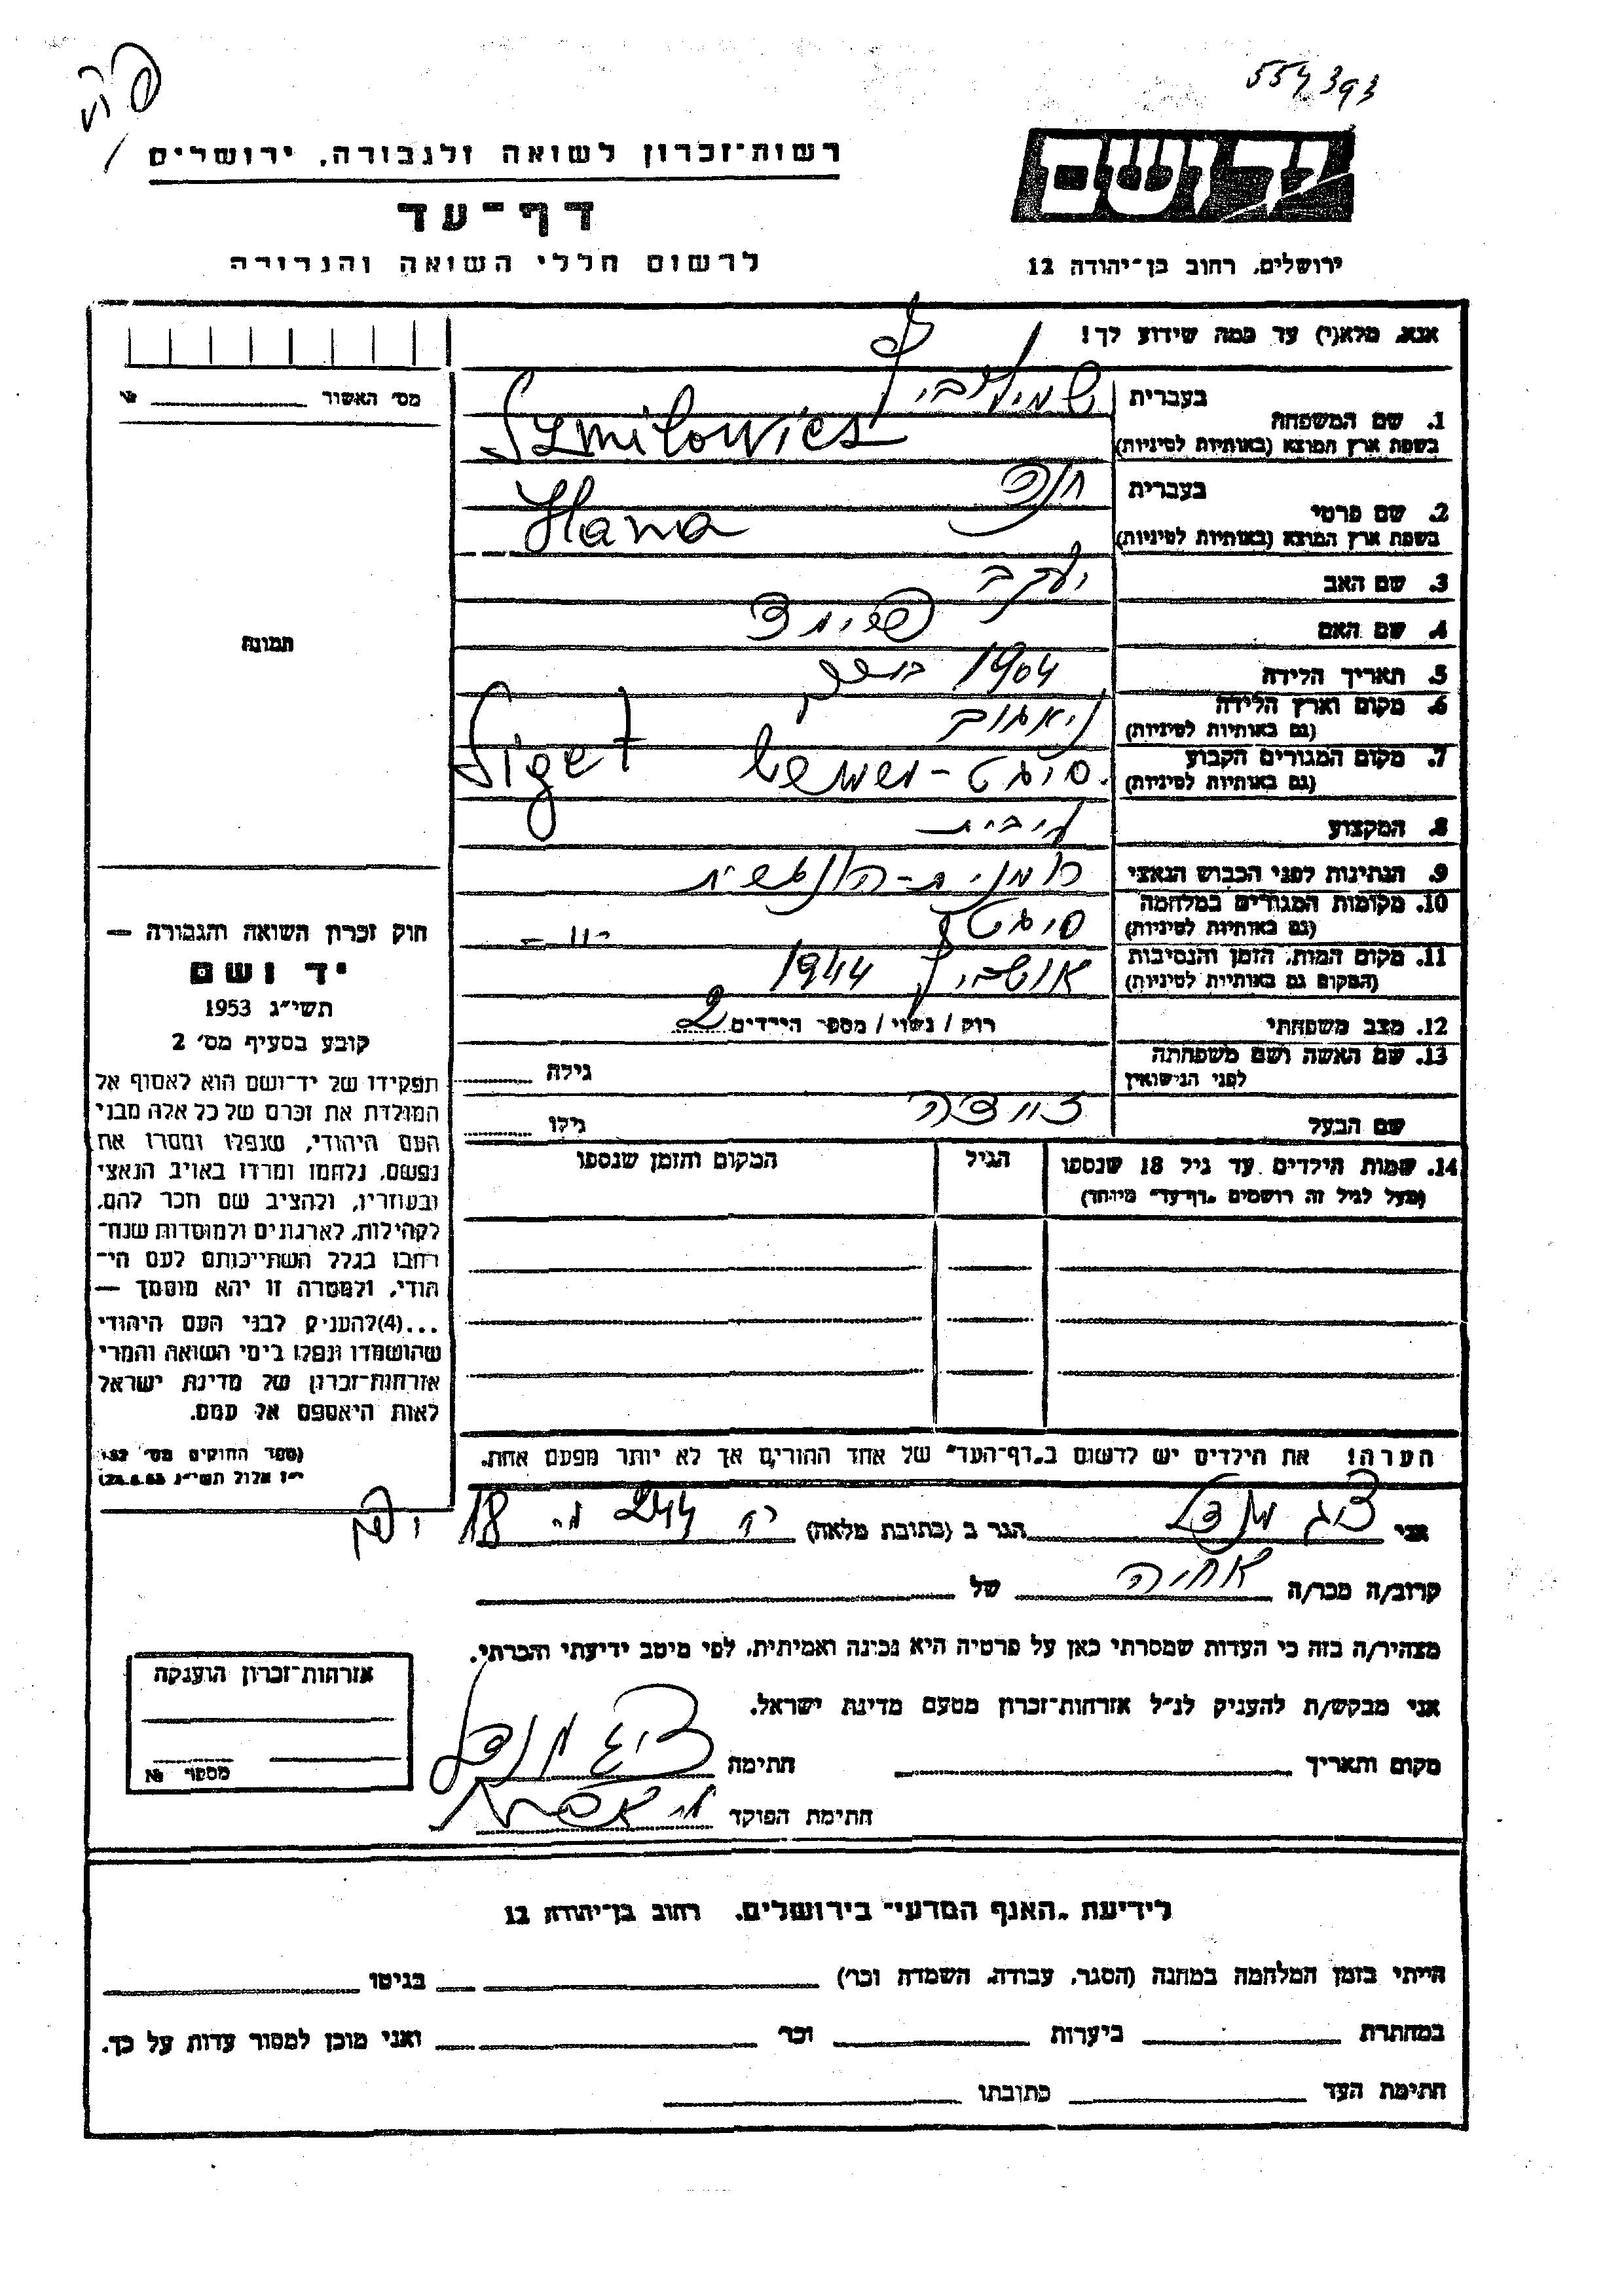 554393
רשות־זכרון לשואה ולגבורה, ירושלים
יד ושם
דף־עד
לרשום חללי השואה והגבורה
ירושלים, רחוב בן־יהודה 12
אנא, מלא(י) עד כמה שידוע לך!
מס׳ האשור
1. שם המשפחה
בעברית שמילוביץ
בשפת ארץ המוצא (באותיות לטיניות) Szmilowics
2. שם פרטי
בעברית חנה
בשפת ארץ המוצא (באותיות לטיניות) Hana
3. שם האב יעקב
4. שם האם
5. תאריך הלידה 1904
6. מקום וארץ הלידה
(גם באותיות לטיניות)
7. מקום המגורים הקבוע סיגט - Siget
(גם באותיות לטיניות)
8. המקצוע
9. הנתינות לפני הכבוש הנאצי רומנית-הונגרית
10. מקומות המגורים במלחמה סיגט - וו -
(גם באותיות לטיניות)
11. מקום המות, הזמן והנסיבות אושביץ 1944
(המקום גם באותיות לטיניות)
12. מצב משפחתי רוק / נשוי / מספר הילדים 2
13. שם האשה ושם משפחתה
לפני הנישואין גילה
שם הבעל גילו
14. שמות הילדים עד גיל 18 שנספו הגיל המקום והזמן שנספו
(מעל לגיל זה רושמים „דף־עד״ מיוחד)
הערה! את הילדים יש לרשום ב„דף־העד״ של אחד ההורים אך לא יותר מפעם אחת.
תמונה
חוק זכרון השואה והגבורה —
יד ושם
תשי״ג 1953
קובע בסעיף מס׳ 2
תפקידו של יד־ושם הוא לאסוף אל
המולדת את זכרם של כל אלה מבני
העם היהודי, שנפלו ומסרו את
נפשם, נלחמו ומרדו באויב הנאצי
ובעוזריו, ולהציב שם וזכר להם,
לקהילות, לארגונים ולמוסדות שנח־
רבו בגלל השתייכותם לעם הי־
הודי, ולמטרה זו יהא מוסמך —
...(4)להעניק לבני העם היהודי
שהושמדו ונפלו בימי השואה והמרי
אזרחות־זכרון של מדינת ישראל
לאות היאספם אל עמם.
(ספר החוקים מס׳ 132
אני הגר ב (כתובת מלאה) 244 18
קרוב/ה מכר/ה אחיה של
מצהיר/ה בזה כי העדות שמסרתי כאן על פרטיה היא נכונה ואמיתית, לפי מיטב ידיעתי והכרתי.
אני מבקש/ת להעניק לנ״ל אזרחות־זכרון מטעם מדינת ישראל.
מקום ותאריך חתימה
חתימת הפוקד
אזרחות־זכרון הוענקה
מספר №
לידיעת „האגף המדעי״ בירושלים, רחוב בן־יהודה 12
הייתי בזמן המלחמה במחנה (הסגר, עבודה, השמדה וכר׳) בגיטו
במחתרת ביערות וכר ואני מוכן למסור עדות על כך.
חתימת העד כתובתו